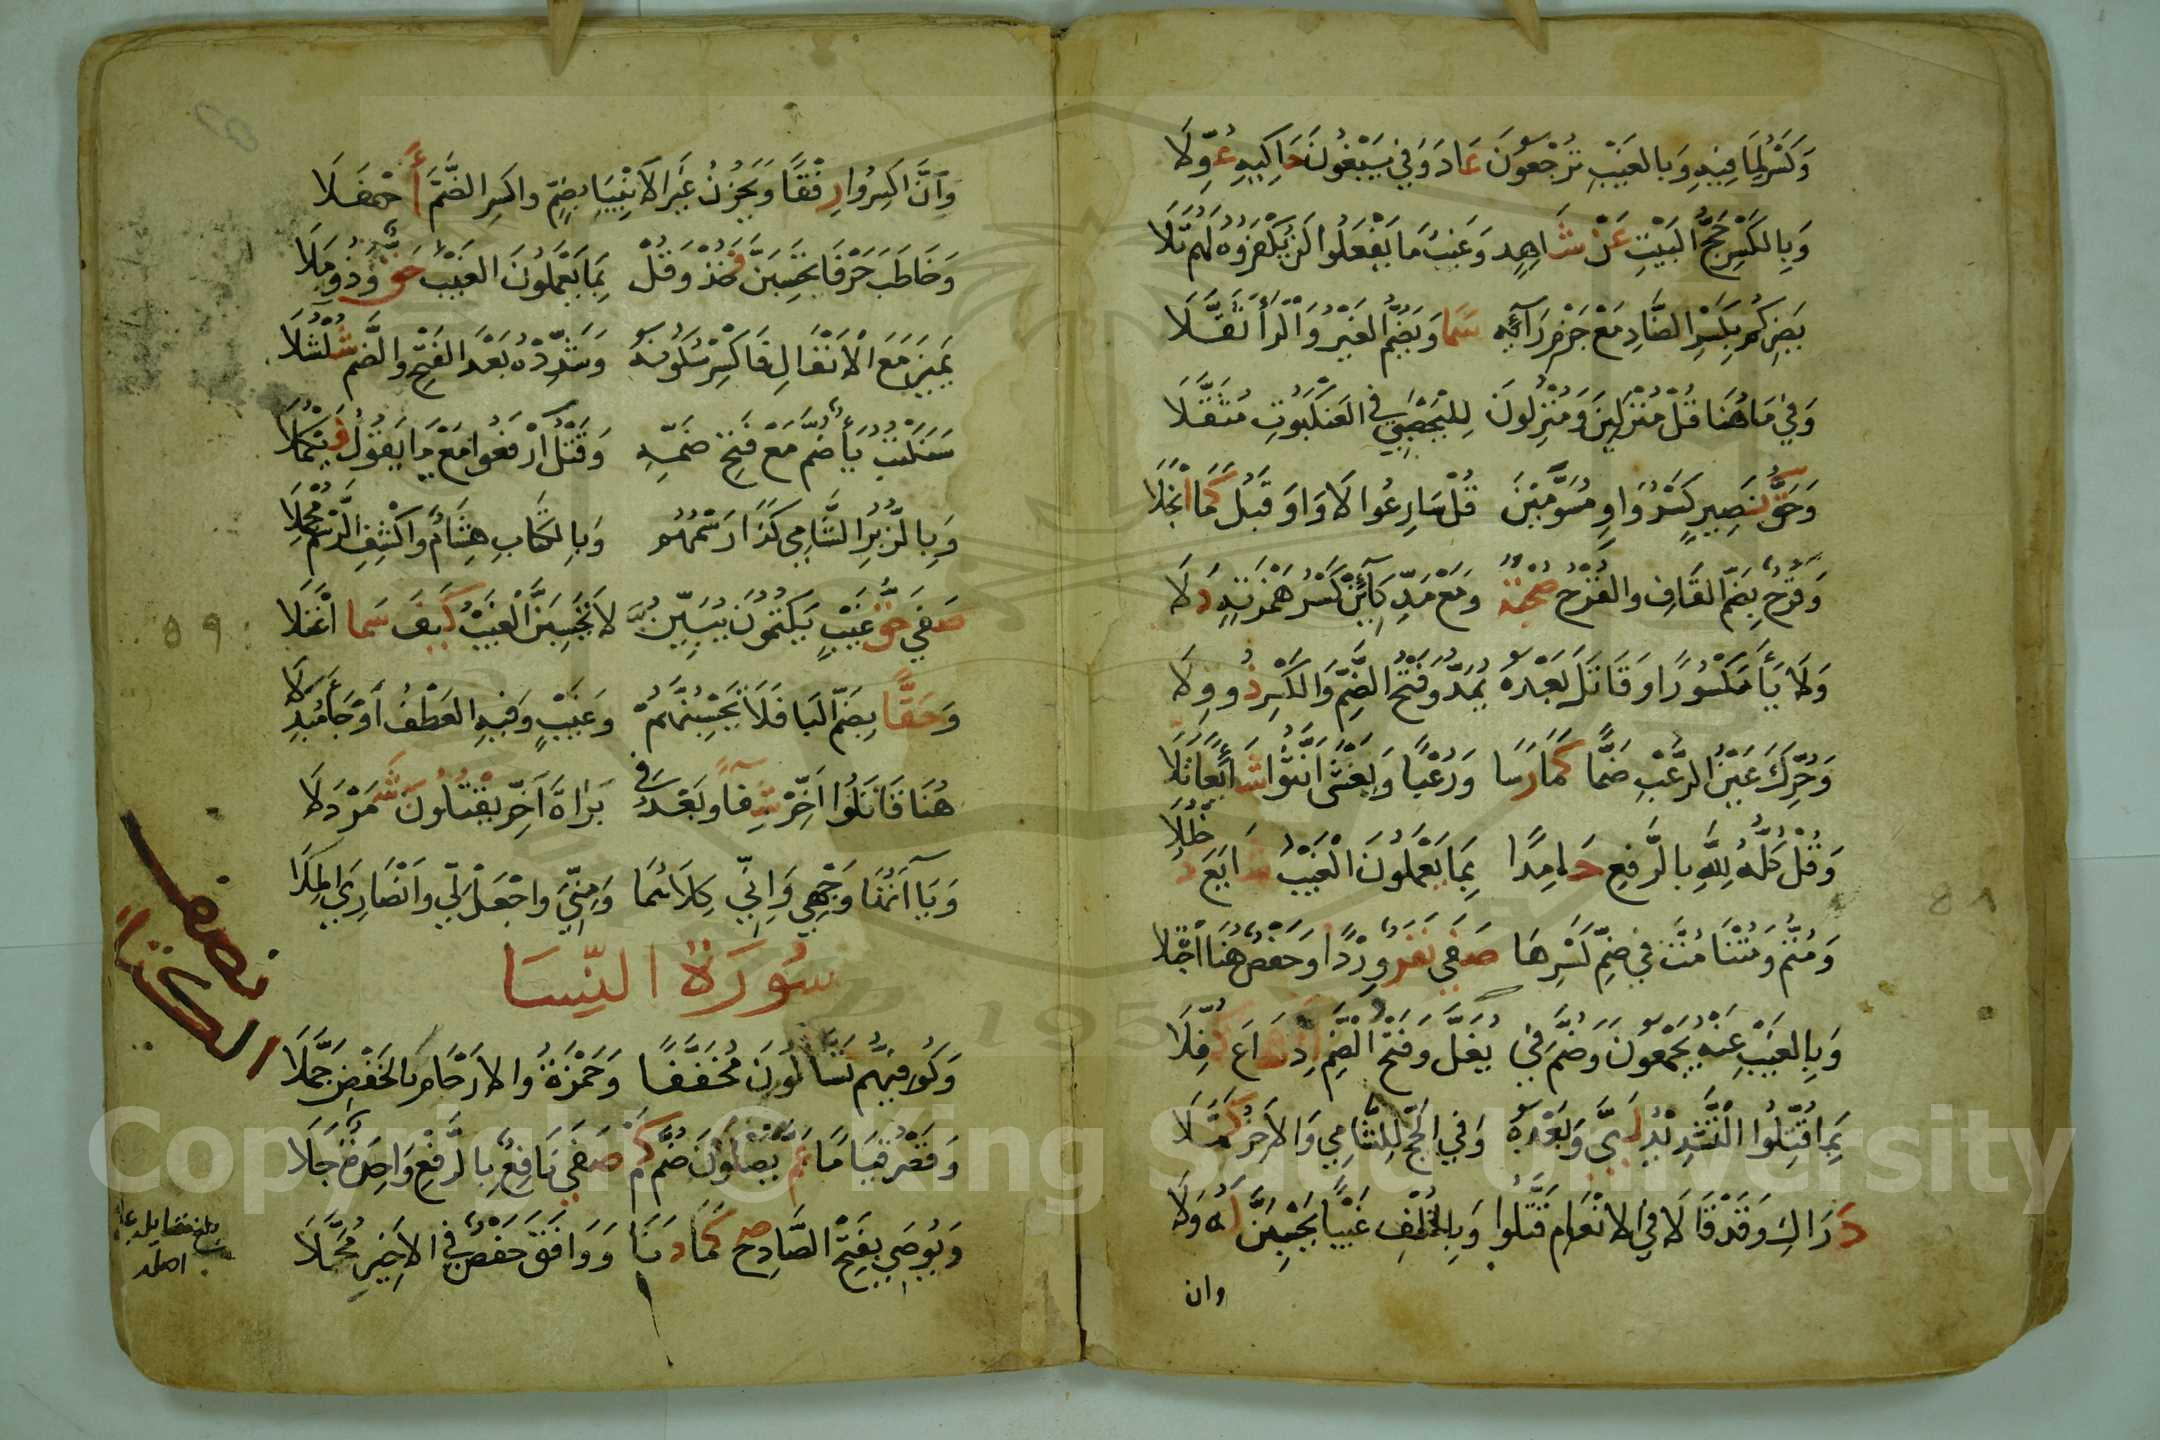 وَكَسْرُ لِمَا فِيهِ وَبِالغَيْبِ تُرْجَعُونَ عَادَ وَفِي يَبْغُونَ حَاكِيهِ عُوِّلَا
وَبِالكَسْرِ حَجُّ البَيْتِ عَنْ شَاهِدٍ وَغَيْبُ مَا يَفْعَلُوا لَنْ يُكْفَرُوهُ لَهُمْ تَلَا
يَضِرْكُمْ بِكَسْرِ الضَّادِ مَعْ جَزْمِ رَائِهِ سَمَا وَيَضُمُّ الغَيْرُ وَالْرَّا ثَقَّلَا
وَفِي مَا هُنَا قُلْ مُنْزَلِينَ وَمُنْزِلُونَ لِلْيَحْصَبِي فِي العَنْكَبُوتِ مُثَقِّلَا
وَحَقُّ نَصِيرٍ كَسْرُ وَاوِ مُسَوِّمِينَ قُلْ سَارِعُوا لَا وَاوَ قَبْلُ كَمَا انْجَلَا
وَقَرْحٌ بِضَمِّ القَافِ وَالقَرْحُ صُحْبَةٌ وَمَعْ مَدِّ كَائِنْ كَسْرُ هَمْزَتِهِ دَلَا
وَلَا يَاءَ مَكْسُورًا وَقَاتَلَ بَعْدَهُ يُمَدُّ وَفَتْحُ الضَّمِّ وَالكَسْرِ ذُو وِلَا
وَحُرِّكَ عَيْنُ الرُّعْبِ ضَمًّا كَمَا رَسَا وَرُعْبًا وَيَغْشَى أَنَّثُوا شَائِعًا تَلَا
وَقُلْ كُلُّهُ لِلَّهِ بِالرَّفْعِ حَامِدًا بِمَا يَعْمَلُونَ الْغَيْبُ شَايَعَ دُخْلُلَا
وَمُتُّمْ وَمُتْنَا مُتُّ فِي ضَمِّ كَسْرِهَا صَفَى نَفَرٌ وِرْدًا وَحَفْصٌ هُنَا اجْتَلَا
وَبِالغَيْبِ عَنْهُ يَجْمَعُونَ وَضُمَّ فِي يَغُلَّ وَفَتْحُ الضَّمِّ إِذْ شَاعَ كُفِّلَا
بِمَا قُتِلُوا التَّشْدِيدُ لَبَّى وَبَعْدَهُ وَفِي الحَجِّ لِلشَّامِي وَالاخِرُ كَمَّلَا
دَرَاكِ وَقَدْ قَالَا فِي الانْعَامِ قَتَّلُوا وَبِالخُلْفِ غَيْبًا يَحْسِبَنَّ لَهُ وَلَا
وان
وَأَنَّ اكْسِرُوا رِفْقًا وَيَحْزُنُ غَيْرَ الانْبِيَا بِضَمٍّ وَاكْسِرِ الضَّمَّ أَحْفَلَا
وَخَاطَبَ حَرْفَا يَحْسِبَنَّ فَخُذْ وَقُلْ بِمَا يَعْمَلُونَ الغَيْبُ حَقٌّ وَذُو مَلَا
يَمِيزَ مَعَ الْانْفَالِ فَاكْسِرْ سُكُونَهُ وَشَدِّدْهُ بَعْدَ الفَتْحِ وَالضَّمِّ شُلْشُلَا
سَنَكْتُبُ يَاءٌ ضُمَّ مَعْ فَتْحِ ضَمِّهِ وَقَتْلُ ارْفَعُوا مَعْ يَا يَقُولُ فَيَكْمُلَا
وَبِالزُّبُرِ الشَّامِي كَذَا رَسْمُهُمْ وَبِالْكِتَابِ هِشَامٌ وَاكْشِفِ الرَّسْمَ مُجْمِلَا
صَفَى حَقُّ غَيْبٍ يَكْتُمُونَ يُبَيِّنُنَّ لَا تَحْسِبَنَّ الْغَيْبُ كَيْفَ سَمَا اعْتَلَا
وَحَقًّا بِضَمِّ البَا فَلَا تَحْسِبُنَّهُمْ وَغَيْبٍ وَفِيهِ العَطْفُ أَوْ جَاءَ مُبْدَلَا
هُنَا قَاتَلُوا أَخِّرْ شِفَاءً وَبَعْدُ فِي بَرَاءَةَ أَخِّرْ يَقْتُلُونَ شَمَرْدَلَا
وَيَاآتُهَا وَجْهِي وَإِنِّي كِلَاهُمَا وَمِنِّيَ وَاجْعَلْ لِّي وَأَنْصَارِيَ الْمِلَا
سُورَةُ النِّسَا
وَكُوفِيُّهُمْ تَسَّاءَلُونَ مُخَفَّفًا وَحَمْزَةُ وَالارْحَامِ بِالخَفْضِ جَمَّلَا
وَقَصْرُ قِيَامًا عَمَّ يَصْلَوْنَ ضُمَّ كَمْ صَفَى نَافِعٌ بِالرَّفْعِ وَاحِدَةٌ جَلَا
وَيُوصَى بِفَتْحِ الصَّادِ صَحَّ كَمَا دَنَا وَوَافَقَ حَفْصٌ فِي الاخِيرِ مُحَمَّلَا